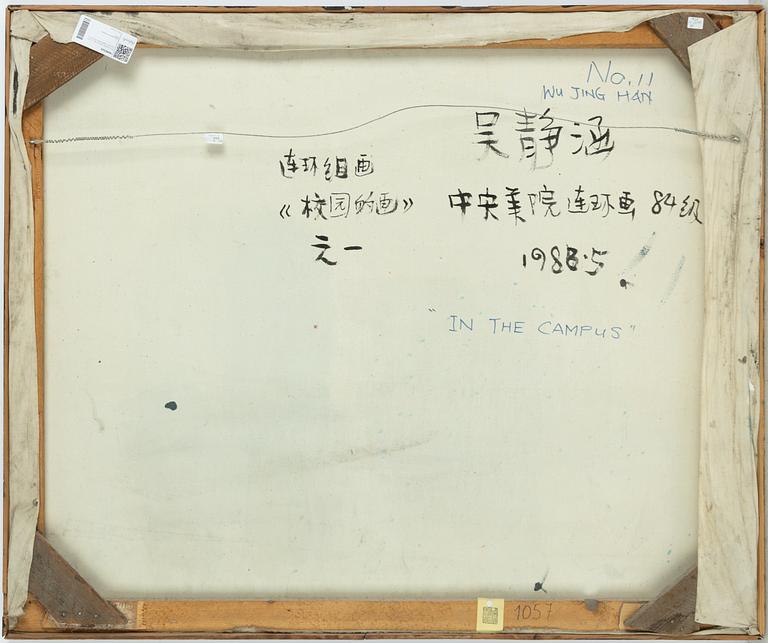 No.11
WU JING HAN
吴静涵
连环组画
《校园的画》
之一
中央美院连环画 84级
1988.5
"IN THE CAMPUS"
1057